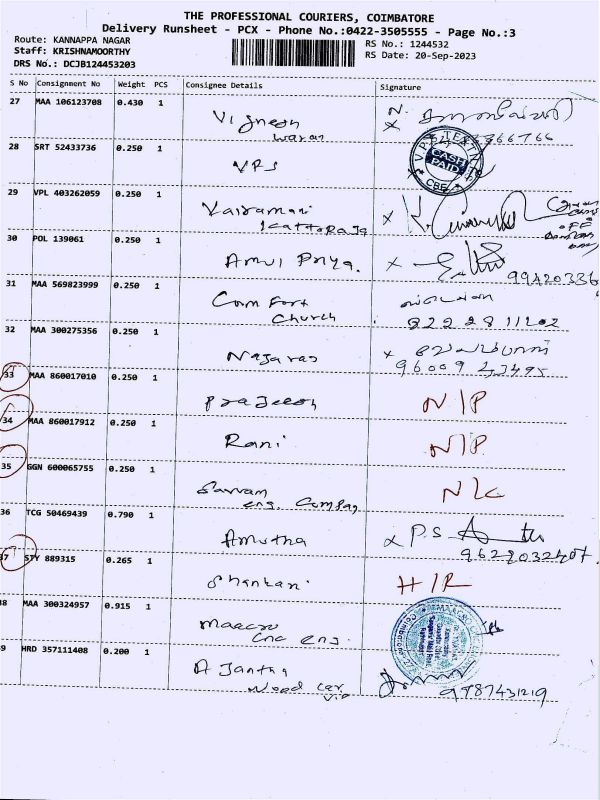 THE PROFESSIONAL COURIERS, COIMBATORE
Delivery Runsheet - PCX - Phone No.:0422-3505555 - Page No.:3
Route: KANNAPPA NAGAR
RS No.: 1244532
Staff: KRISHNAMOORTHY
RS Date: 20-Sep-2023
DRS No.: DCJB124453203
S No Consignment No Weight PCS Consignee Details Signature
27 MAA 106123708 0.430 1
Vignesh
waran
28 SRT 52433736 0.250 1
VPS
CASH PAID
CBE
29 VPL 403262059 0.250 1
Vairamani
x
30 POL 139061 0.250 1
Amul Priya.
x
99420336
31 MAA 569823999 0.250 1
Com Fort
Church
822 28 11202
32 MAA 300275356 0.250 1
Nagaraj
x
33 MAA 860017010 0.250 1
Prajeesh
N/P
34 MAA 860017912 0.250 1
Rani
N/P
35 GGN 600065755 0.250 1
eng Company
N/C
36 TCG 50469439 0.790 1
Amutha
x P.S
37 STY 889315 0.265 1
Shankari
38 MAA 300324957 0.915 1
Maacro
cnc eng.
39 HRD 357111408 0.200 1
A Jantha
wood
9787431219